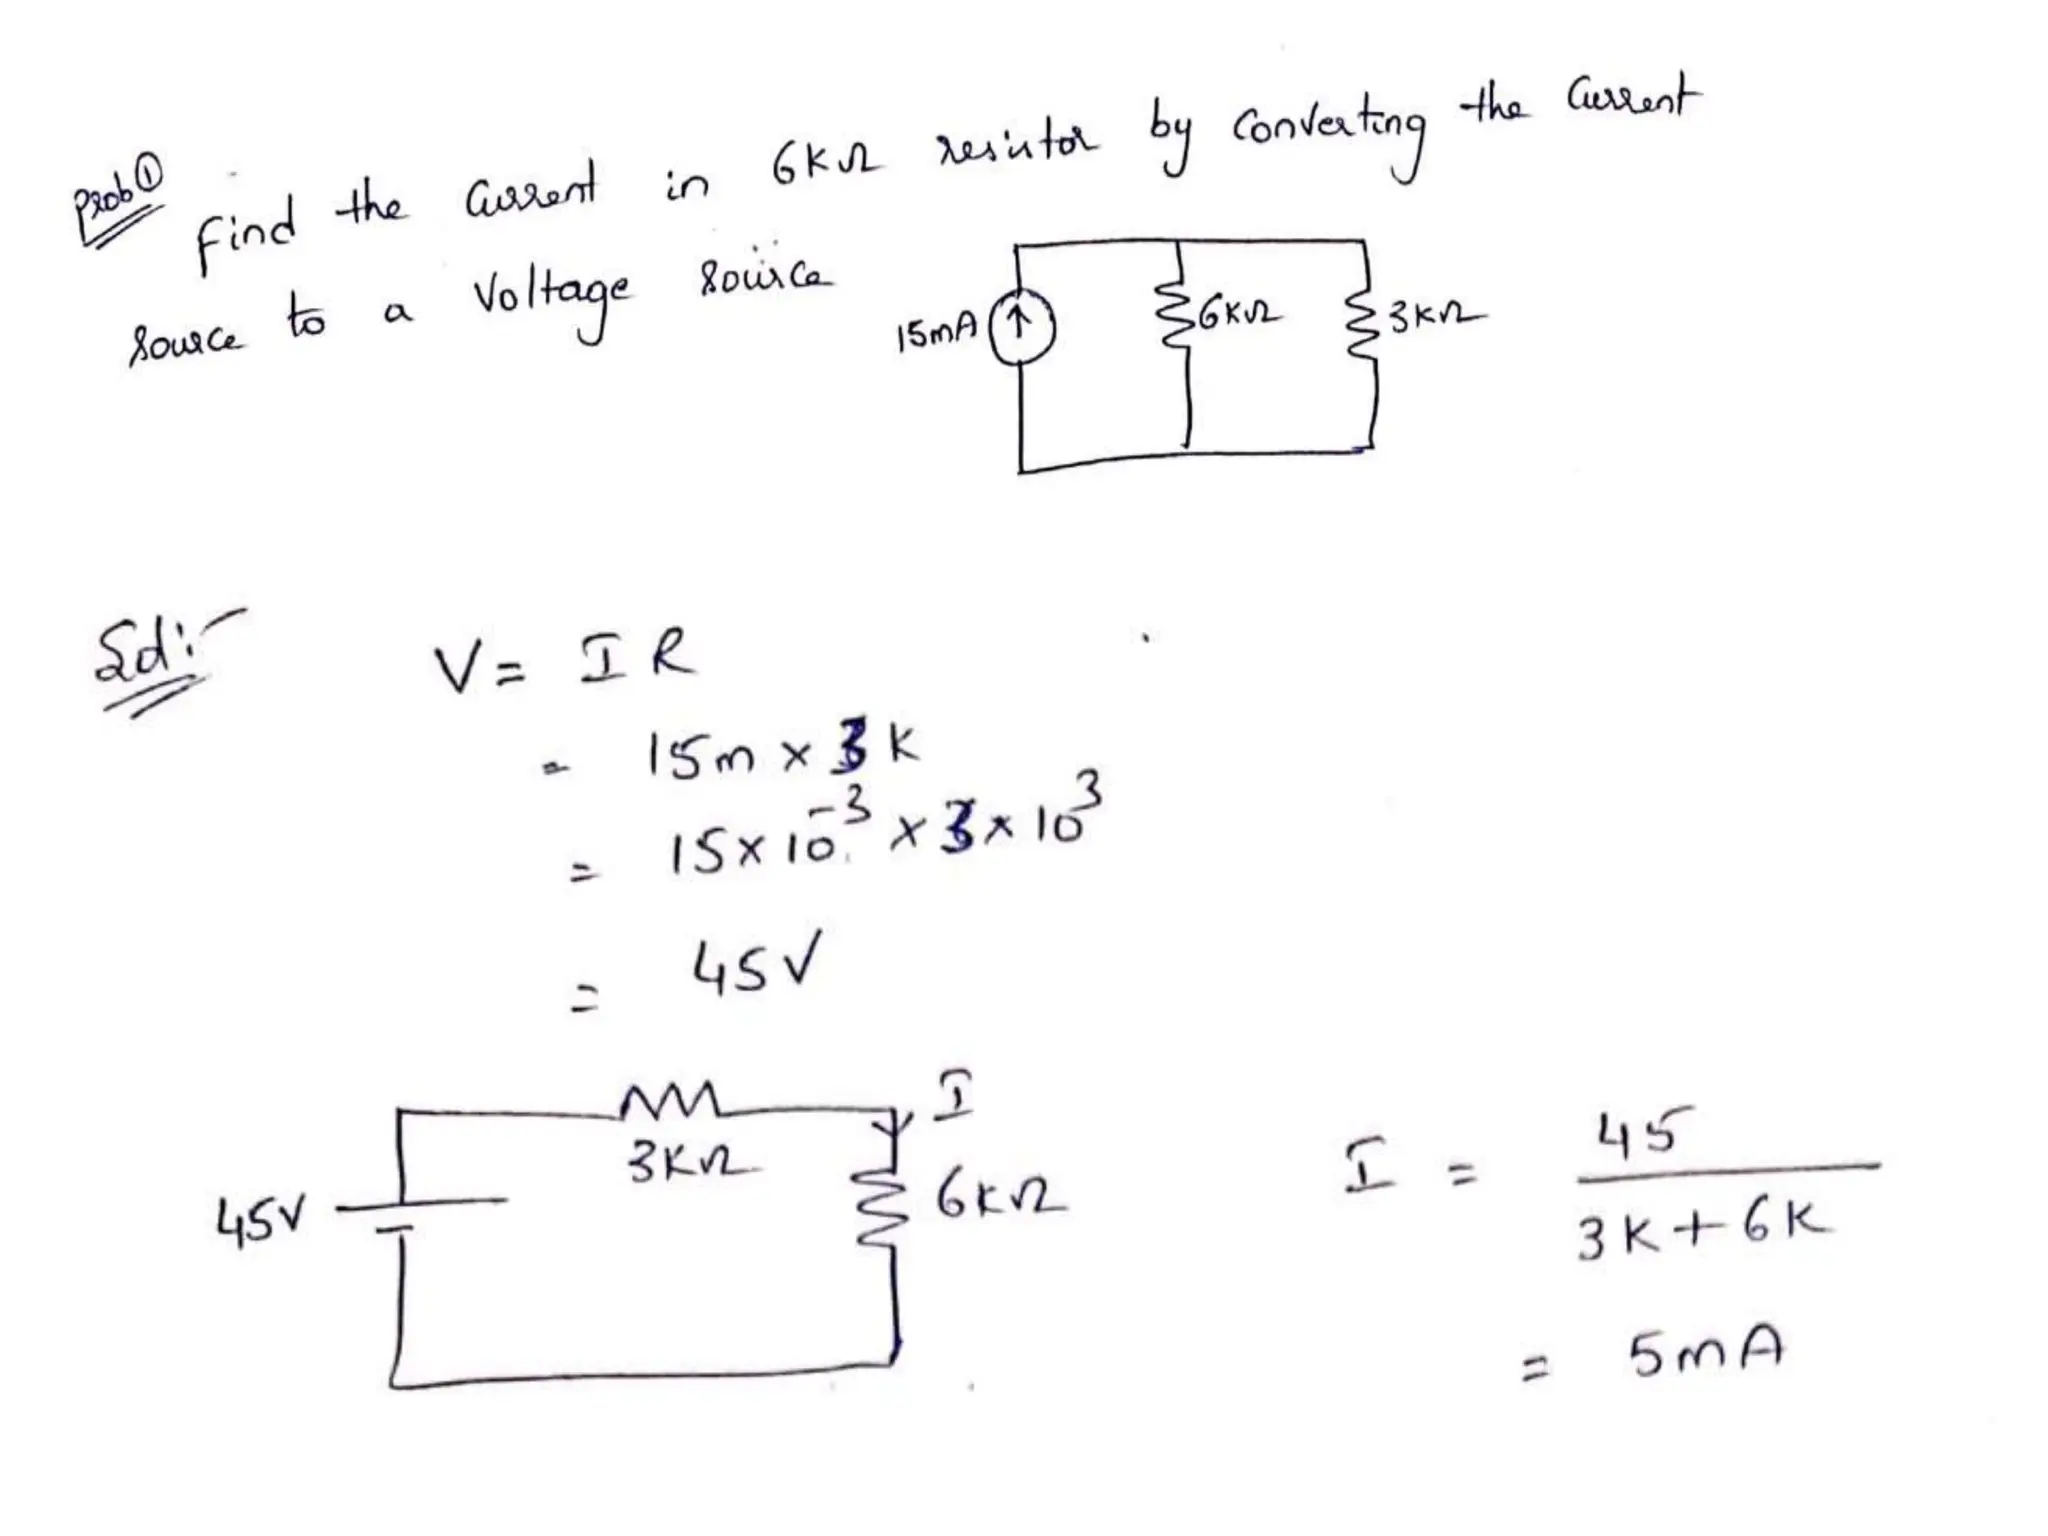 Prob ①
Find the Current in 6KΩ resistor by Converting the Current
Source to a Voltage Source
15mA
6KΩ
3KΩ
Sol:-
V = I R
= 15m x 3K
= 15x10⁻³ x 3x10³
= 45V
45V
3KΩ
I
6KΩ
I = 45 / 3K+6K
= 5mA